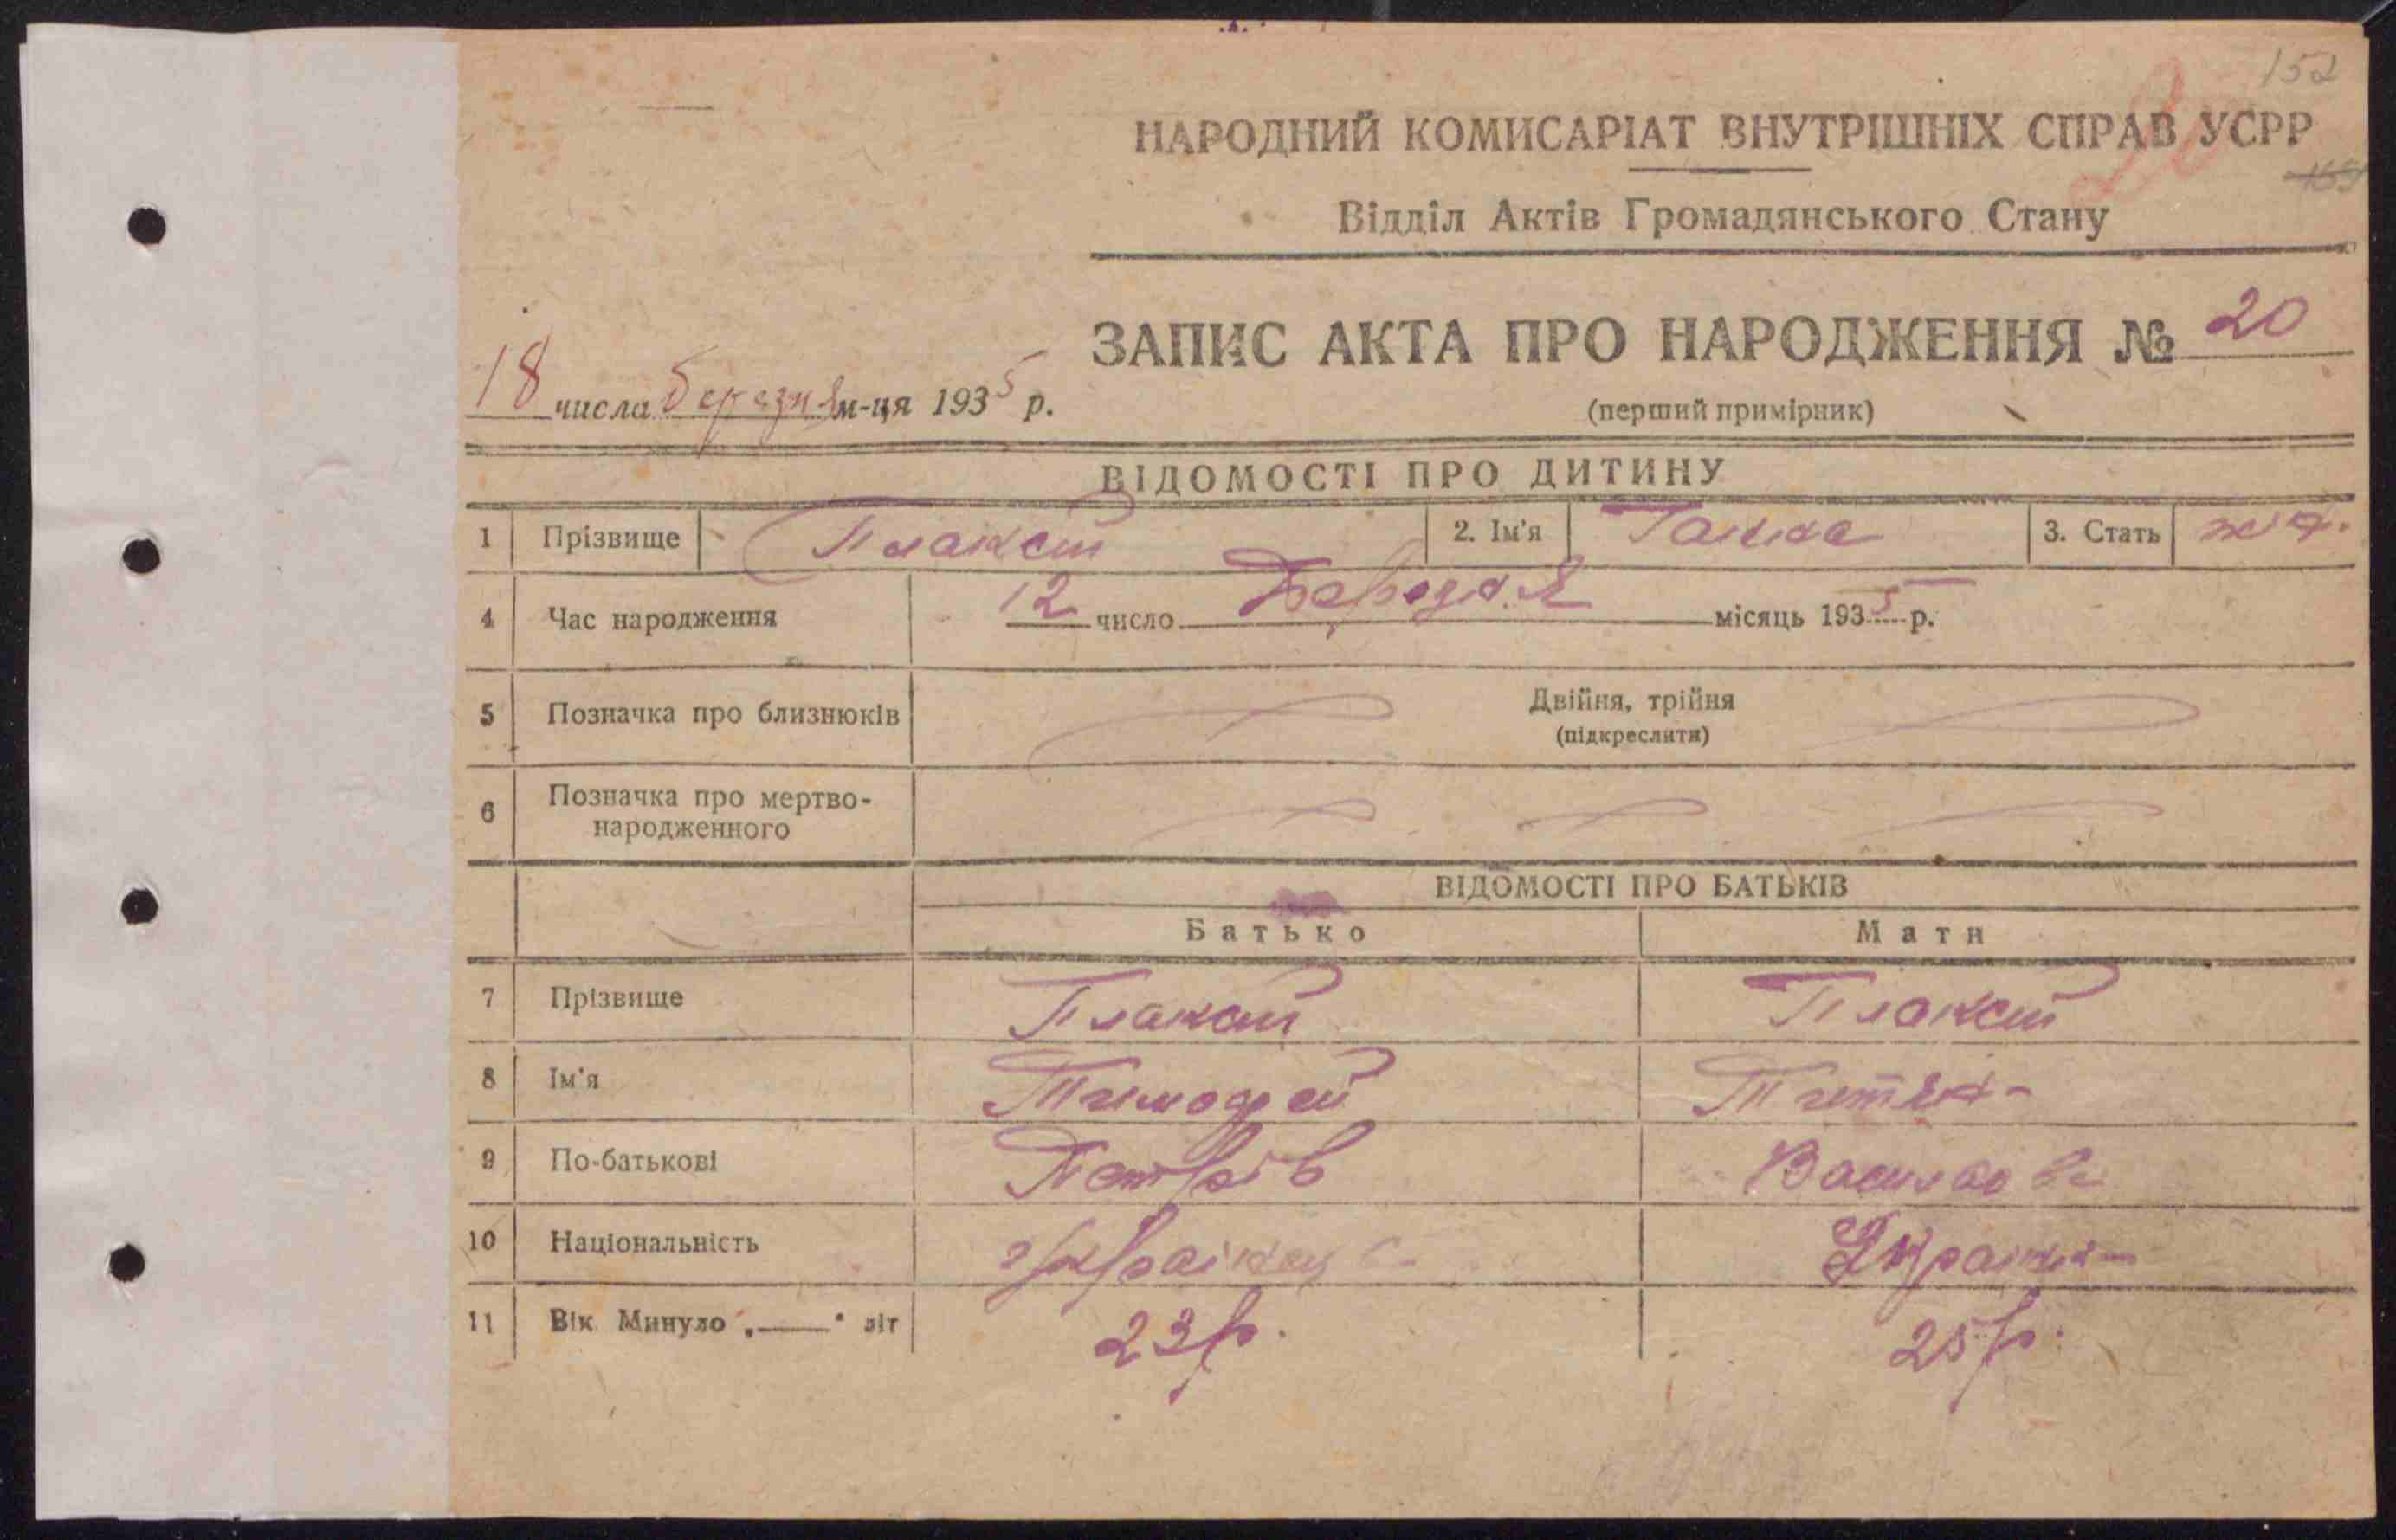 152
НАРОДНИЙ КОМИСАРІАТ ВНУТРІШНІХ СПРАВ УСРР
Відділ Актів Громадянського Стану
ЗАПИС АКТА ПРО НАРОДЖЕННЯ № 20
18 числа березня м-ця 1935 р.
(перший примірник)
ВІДОМОСТІ ПРО ДИТИНУ
1 Прізвище Плаксій 2. Ім'я Ганна 3. Стать
4 Час народження 12 число Березня місяць 1935 р.
5 Позначка про близнюків Двійня, трійня
(підкреслити)
6 Позначка про мертво-
народженного
ВІДОМОСТІ ПРО БАТЬКІВ
Батько Мати
7 Прізвище Плаксій Плаксій
8 Ім'я Тимофей
9 По-батькові Петрів
10 Національність
11 Вік Минуло „—" літ 23 р. 25 р.